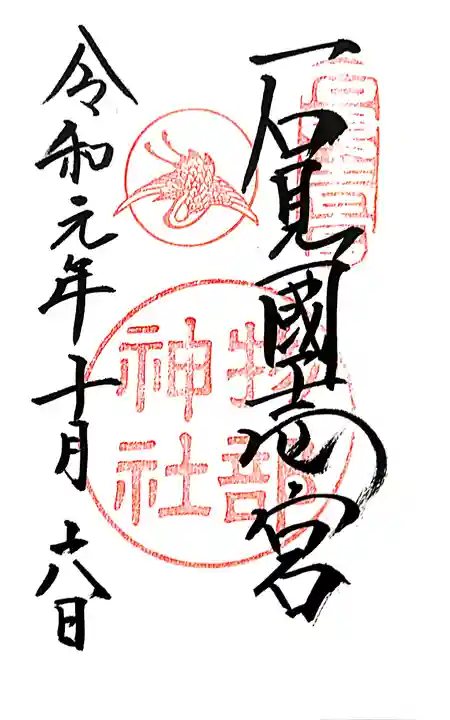 石見國壱宮
物部
神社
令和元年十月十八日